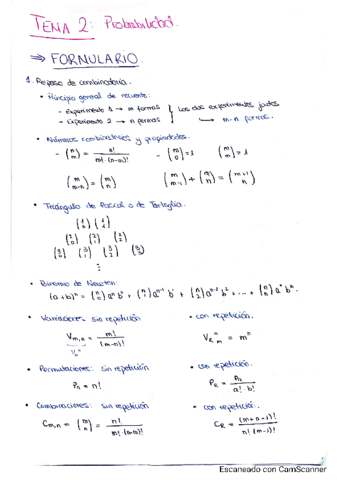 TEMA 2: Probabilidad.
⇒ FORMULARIO.
1. Repaso de combinatoria.
• Principio general de recuento:
- Experimento 1 → m formas
- Experimento 2 → n formas
} Los dos experimentos juntos
↳ m·n formas.
• Números combinatorios y propiedades.
- (m n) = n! / m!·(n-m)!
- (m 0) = 1
(m m) = 1
(m m-n) = (m n)
(m n-1) + (m n) = (m+1 n)
• Triángulo de Pascal o de Tartaglia
(1 0) (1 1)
(2 0) (2 1) (2 2)
(3 0) (3 1) (3 2) (3 3)
⋮
• Binomio de Newton
(a+b)ⁿ = (n 0) aⁿ b⁰ + (n 1) aⁿ⁻¹ b¹ + (n 2) aⁿ⁻² b² + ... + (n n) a⁰ bⁿ.
• Variaciones: sin repetición
• con repetición.
Vm,n = m! / (m-n)!
VR m n = mⁿ
• Permutaciones: sin repetición
• con repetición.
Pn = n!
PR = Pn / a! · b!
• Combinaciones: sin repetición
• con repetición.
Cm,n = (m n) = n! / m!·(n-m)!
CR = (m+n-1)! / n!(m-1)!
Escaneado con CamScanner